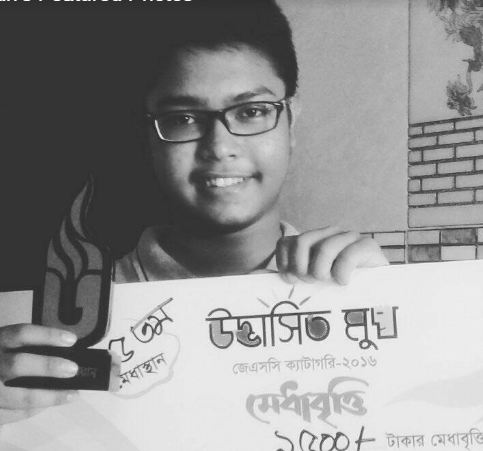 Featured Photos
৫ তম
মেধাস্থান
উদ্ভাসিত মুখ
জেএসসি ক্যাটাগরি-২০১৬
মেধাবৃত্তি
১৫০০/- টাকার মেধাবৃত্তি